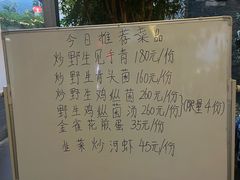 今日推荐菜品
炒野生见手青 180元/份
炒野生骨头菌 160元/份
炒野生鸡枞菌 260元/份
野生鸡枞菌汤 260元/份 (限量4份)
金雀花煎蛋 35元/份
韭菜炒河虾 45元/份